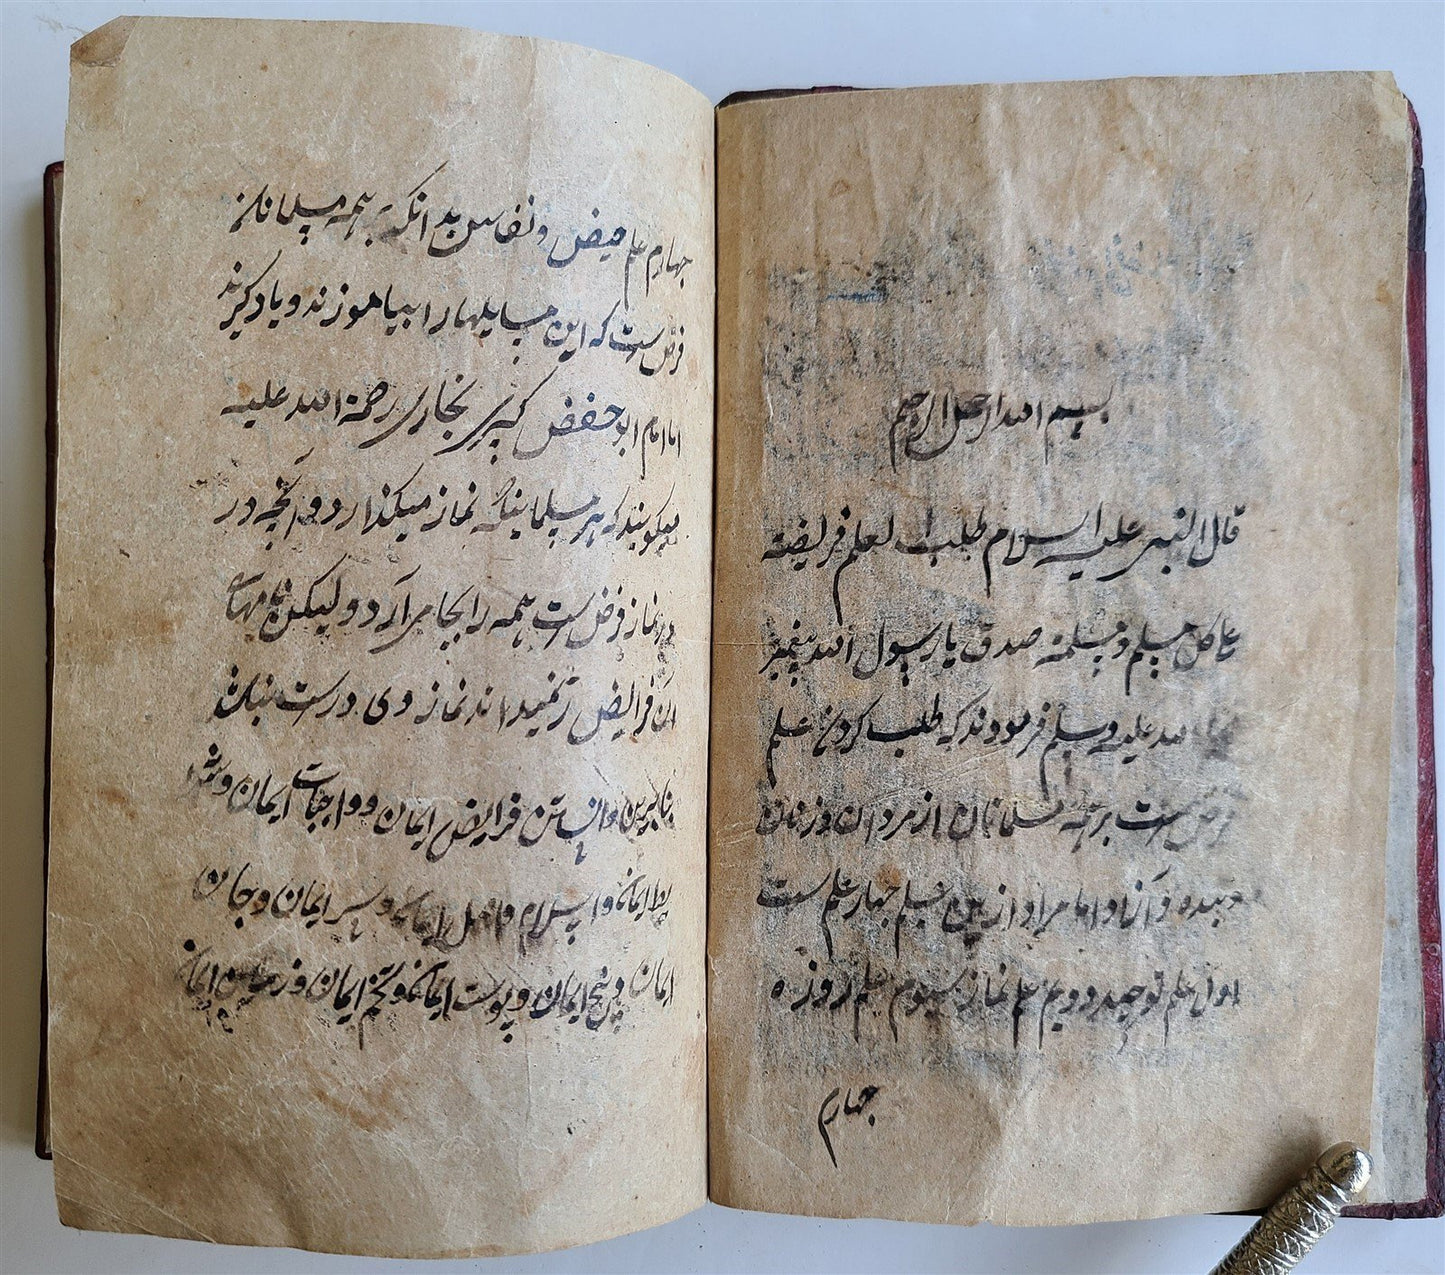 بسم الله الرحمن الرحیم
قال النبی علیه السلام طلب العلم فریضته
علی کل مسلم و مسلمته صدق یا رسول الله پیغمبر
الله علیه وسلم فرمودند که طلب کردن علم
فرض است بر همه مسلمانان از مردان و زنان
و بنده و آزاد اما مراد از این علم چهار علم ست
اول علم توحید دویم علم نماز سیوم علم روزه
چهارم
چهارم علم حیض و نفاس بدانکه بر همه مسلمانان
فرض است که این مسایلهارا بیاموزند و یاد گیرند
اما امام ابو حفض کبیری بخاری رحمة الله علیه
میکویند که هر مسلمانیکه نماز میکذارد و آنچه در
در نماز فرض است همه را بجا می آرد و لیکن
این فرایض را نمیداند نماز وی درست نباشد
بنابرین دانستن فرایض ایمان و واجبات ایمان و
ایمان و اسلام و اصل ایمان و سر ایمان و جان
ایمان و بیخ ایمان و پوست ایمان و تخم ایمان و ایمان